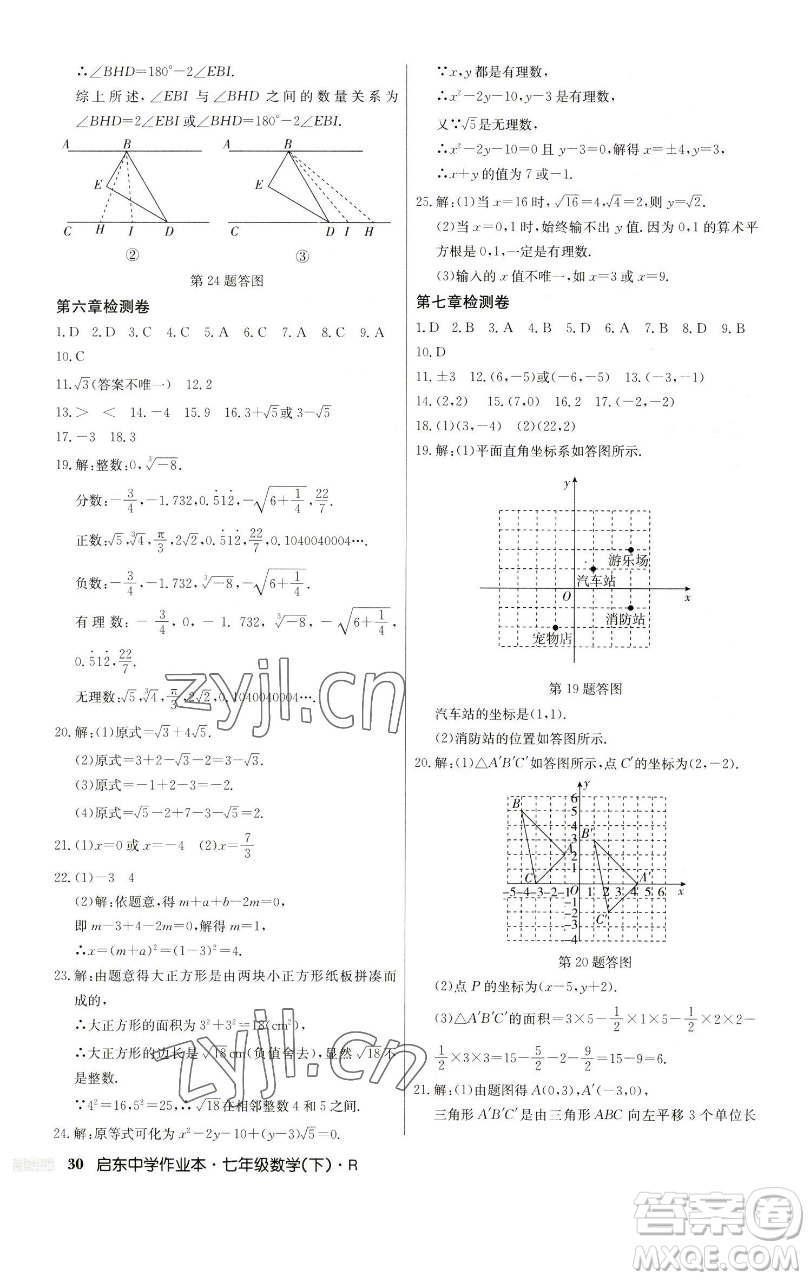 ∴∠BHD=180°−2∠EBI.
综上所述,∠EBI 与∠BHD 之间的数量关系为
∠BHD=2∠EBI 或∠BHD=180°−2∠EBI.
A B A B
E E
C H I D C D I H
② ③
第 24 题答图
第六章检测卷
1.D 2.D 3.C 4.C 5.A 6.C 7.C 8.C 9.A
10.C
11.√3(答案不唯一) 12.2
13.> < 14.−4 15.9 16.3+√5或 3−√5
17.−3 18.3
19.解:整数:0,∛−8.
分数:−3/4,−1.732,0.5̇12̇,−√(6+1/4),22/7.
正数:√5,∛4,π/3,2√5,0.5̇12̇,22/7,0.1040040004….
负数:−3/4,−1.732,∛−8,−√(6+1/4).
有理数:−3/4,0,−1.732,∛−8,−√(6+1/4),
0.5̇12̇,22/7.
无理数:√5,∛4,π/3,2√5,0.1040040004….
20.解:(1)原式=√3+4√5.
(2)原式=3+2−√3−2=3−√3.
(3)原式=11−4=7.
(4)原式=√5−2+7−3−√5=2.
21.(1)x=0 或 x=−4 (2)x=7/3
22.(1)−3 4
(2)解:依题意,得 m+a+b−2m=0,
即 m−3+4−2m=0,解得 m=1,
∴x=(m+a)²=(1−3)²=4.
23.解:由题意得大正方形是由两块小正方形纸板拼凑而
成的,
∴大正方形的面积为 3²+3²=18(cm²),
∴大正方形的边长是 √18 cm(负值舍去),显然 √18不
是整数.
∵4²=16,5²=25,∴√18在相邻整数 4 和 5 之间.
24.解:原等式可化为 x²−2y−10+√5(y−3)=0.
30 启东中学作业本·七年级数学(下)·R
∵x,y 都是有理数,
∴x²−2y−10,y−3 是有理数,
又∵√5是无理数,
∴x²−2y−10=0 且 y−3=0,解得 x=±4,y=3,
∴x+y 的值为 7 或−1.
25.解:(1)当 x=16 时,√16=4,√4=2,则 y=√2.
(2)当 x=0,1 时,始终输不出 y 值.因为 0,1 的算术平
方根是 0,1,一定是有理数.
(3)输入的 x 值不唯一,如 x=3 或 x=9.
第七章检测卷
1.D 2.B 3.A 4.D 5.A 6.B 7.D 8.D 9.B
10.D
11.±3 12.(6,−5)或(−6,−5) 13.(−4,−1)
14.(2,2) 15.(7,0) 16.2 17.(−2,−2)
18.(1)(3,−4) (2)(22,2)
19.解:(1)平面直角坐标系如答图所示.
y
游乐场
汽车站
O x
消防站
宠物店
第 19 题答图
汽车站的坐标是(1,1).
(2)消防站的位置如答图所示.
20.解:(1)△A′B′C′如答图所示,点 C′的坐标为(2,−2).
y
6
B 5
4
B′ 3
A 2
1
C O A′
−5−4−3−2−1 1 2 3 4 5 6 x
−1
C′ −2
−3
−4
第 20 题答图
(2)点 P 的坐标为(x−5,y+2).
(3)△A′B′C′的面积=3×5−1/2×1×5−1/2×2×2−
1/2×3×3=15−5/2−2−9/2=15−9=6.
21.解:(1)由题图得 A(0,3),A′(−3,0),
三角形 A′B′C′是由三角形 ABC 向左平移 3 个单位长
zyjl.cn
zyjl.cn
答案圈
MXQE.COM